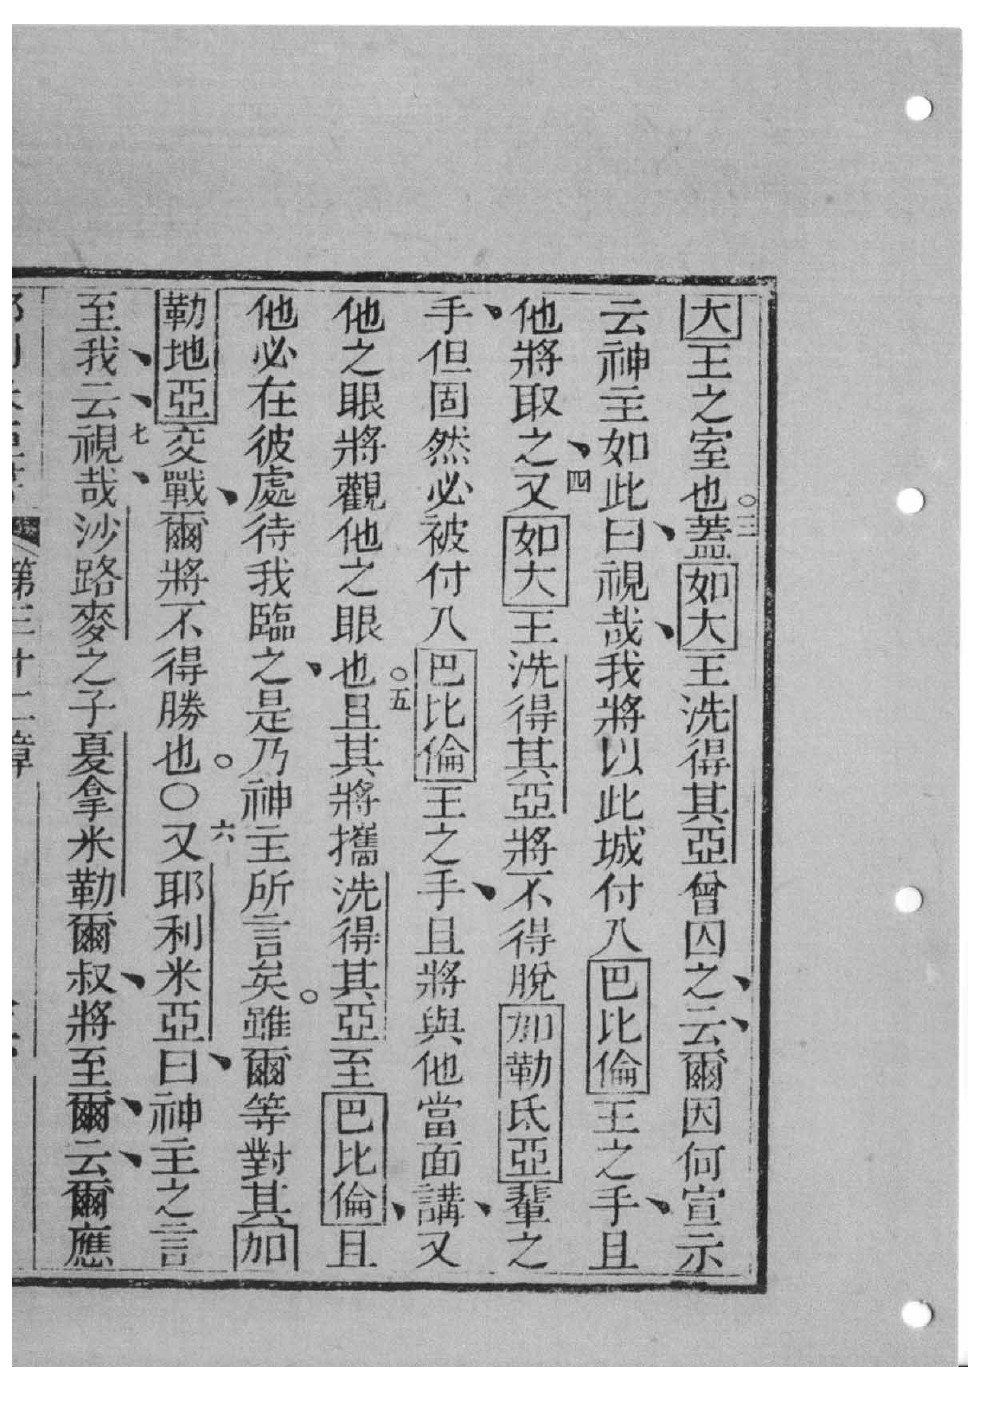 大王之室也。三蓋如大王洗得其亞曾囚之、云、爾因何宣示
云神主如此曰、視哉、我將以此城付入巴比倫王之手、且
他將取之、四又如大王洗得其亞將不得脫加勒氐亞輩之
手、但固然必被付入巴比倫王之手、且將與他當面講、又
他之眼將觀他之眼也。五且其將攜洗得其亞至巴比倫、且
他必在彼處待我臨之、是乃神主所言矣。雖爾等對其加
勒地亞交戰、爾將不得勝也。○六又耶利米亞曰、神主之言
至我、云、七視哉、沙路麥之子戞拿米勒爾叔將、至爾、云、爾應
第三十二章